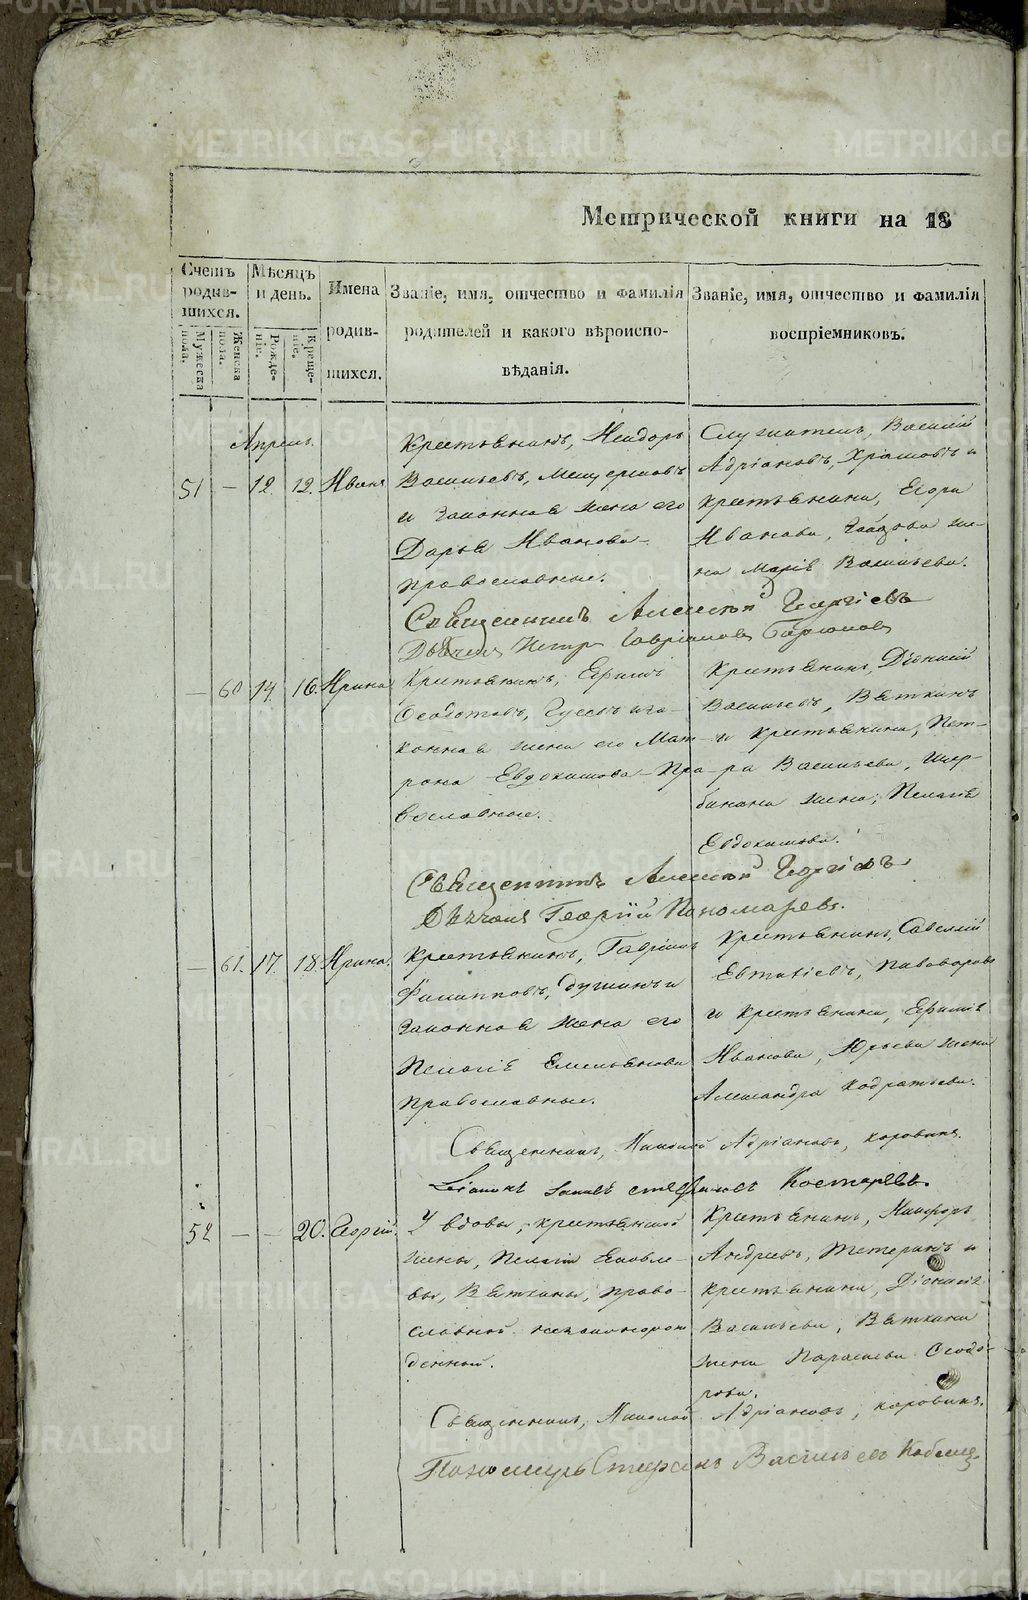 Метрической книги на 18
Счетъ родив-шихся.
Мужеска пола.
Женска пола.
Мѣсяцъ и день.
Рожде-ніе.
Креще-ніе.
Имена
родив-
шихся.
Званіе, имя, отчество и фамилія
родителей и какого вѣроиспо-
вѣданія.
Званіе, имя, отчество и фамилія
воспріемниковъ.
Апрель
51 — 12. 12. Иванъ
Крестьянинъ,
Васильевъ,
и законная жена его
Дарья Иванова
православные.
Служитель, Василій
Адріановъ, Храмовъ и
крестьянина, Егора
Иванова, же-
на Марія Васильева.
Священникъ Алексѣй Георгіевъ
Дьячекъ Петр Гавріиловъ
— 60 14. 16. Ирина
Крестьянинъ, Ефимъ
Ѳедотовъ, Гусевъ и за-
конная жена его Мат-
рона Евдокимова Пра-
вославные.
Крестьянинъ, Діонисій
Васильевъ, Вяткинъ
и крестьянина, Пет-
ра Васильева, Щер-
бакова жена, Пелагія
Евдокимова.
Священникъ Алексѣй Георгіевъ
Дьячекъ Георгій Пономаревъ.
— 61. 17. 18. Ирина.
Крестьянинъ, Гавріилъ
Филипповъ, и
законная жена его
Пелагія Емельянова
православные.
Крестьянинъ, Савелій
Евтихіевъ, Пивоваровъ
и крестьянина, Ефима
Иванова, Юрьева жена
Александра Кодратьева.
Священникъ, Николай Адріановъ, Коровинъ.
Стефановъ Костаревъ
52 — — 20. Георгій.
У вдовы, крестьянской
жены, Пелагіи Яковле-
вы, Вяткины, право-
славной незаконорож
денный.
Крестьянинъ, Никифоръ
Андреевъ, Тетеринъ и
крестьянина, Діонисія
Васильева, Вяткина
жена Парасковья Ѳеодо-
рова.
Священникъ, Николай Адріановъ, Коровинъ.
Пономарь Стефанъ Васильевъ
METRIKI.GASO-URAL.RU